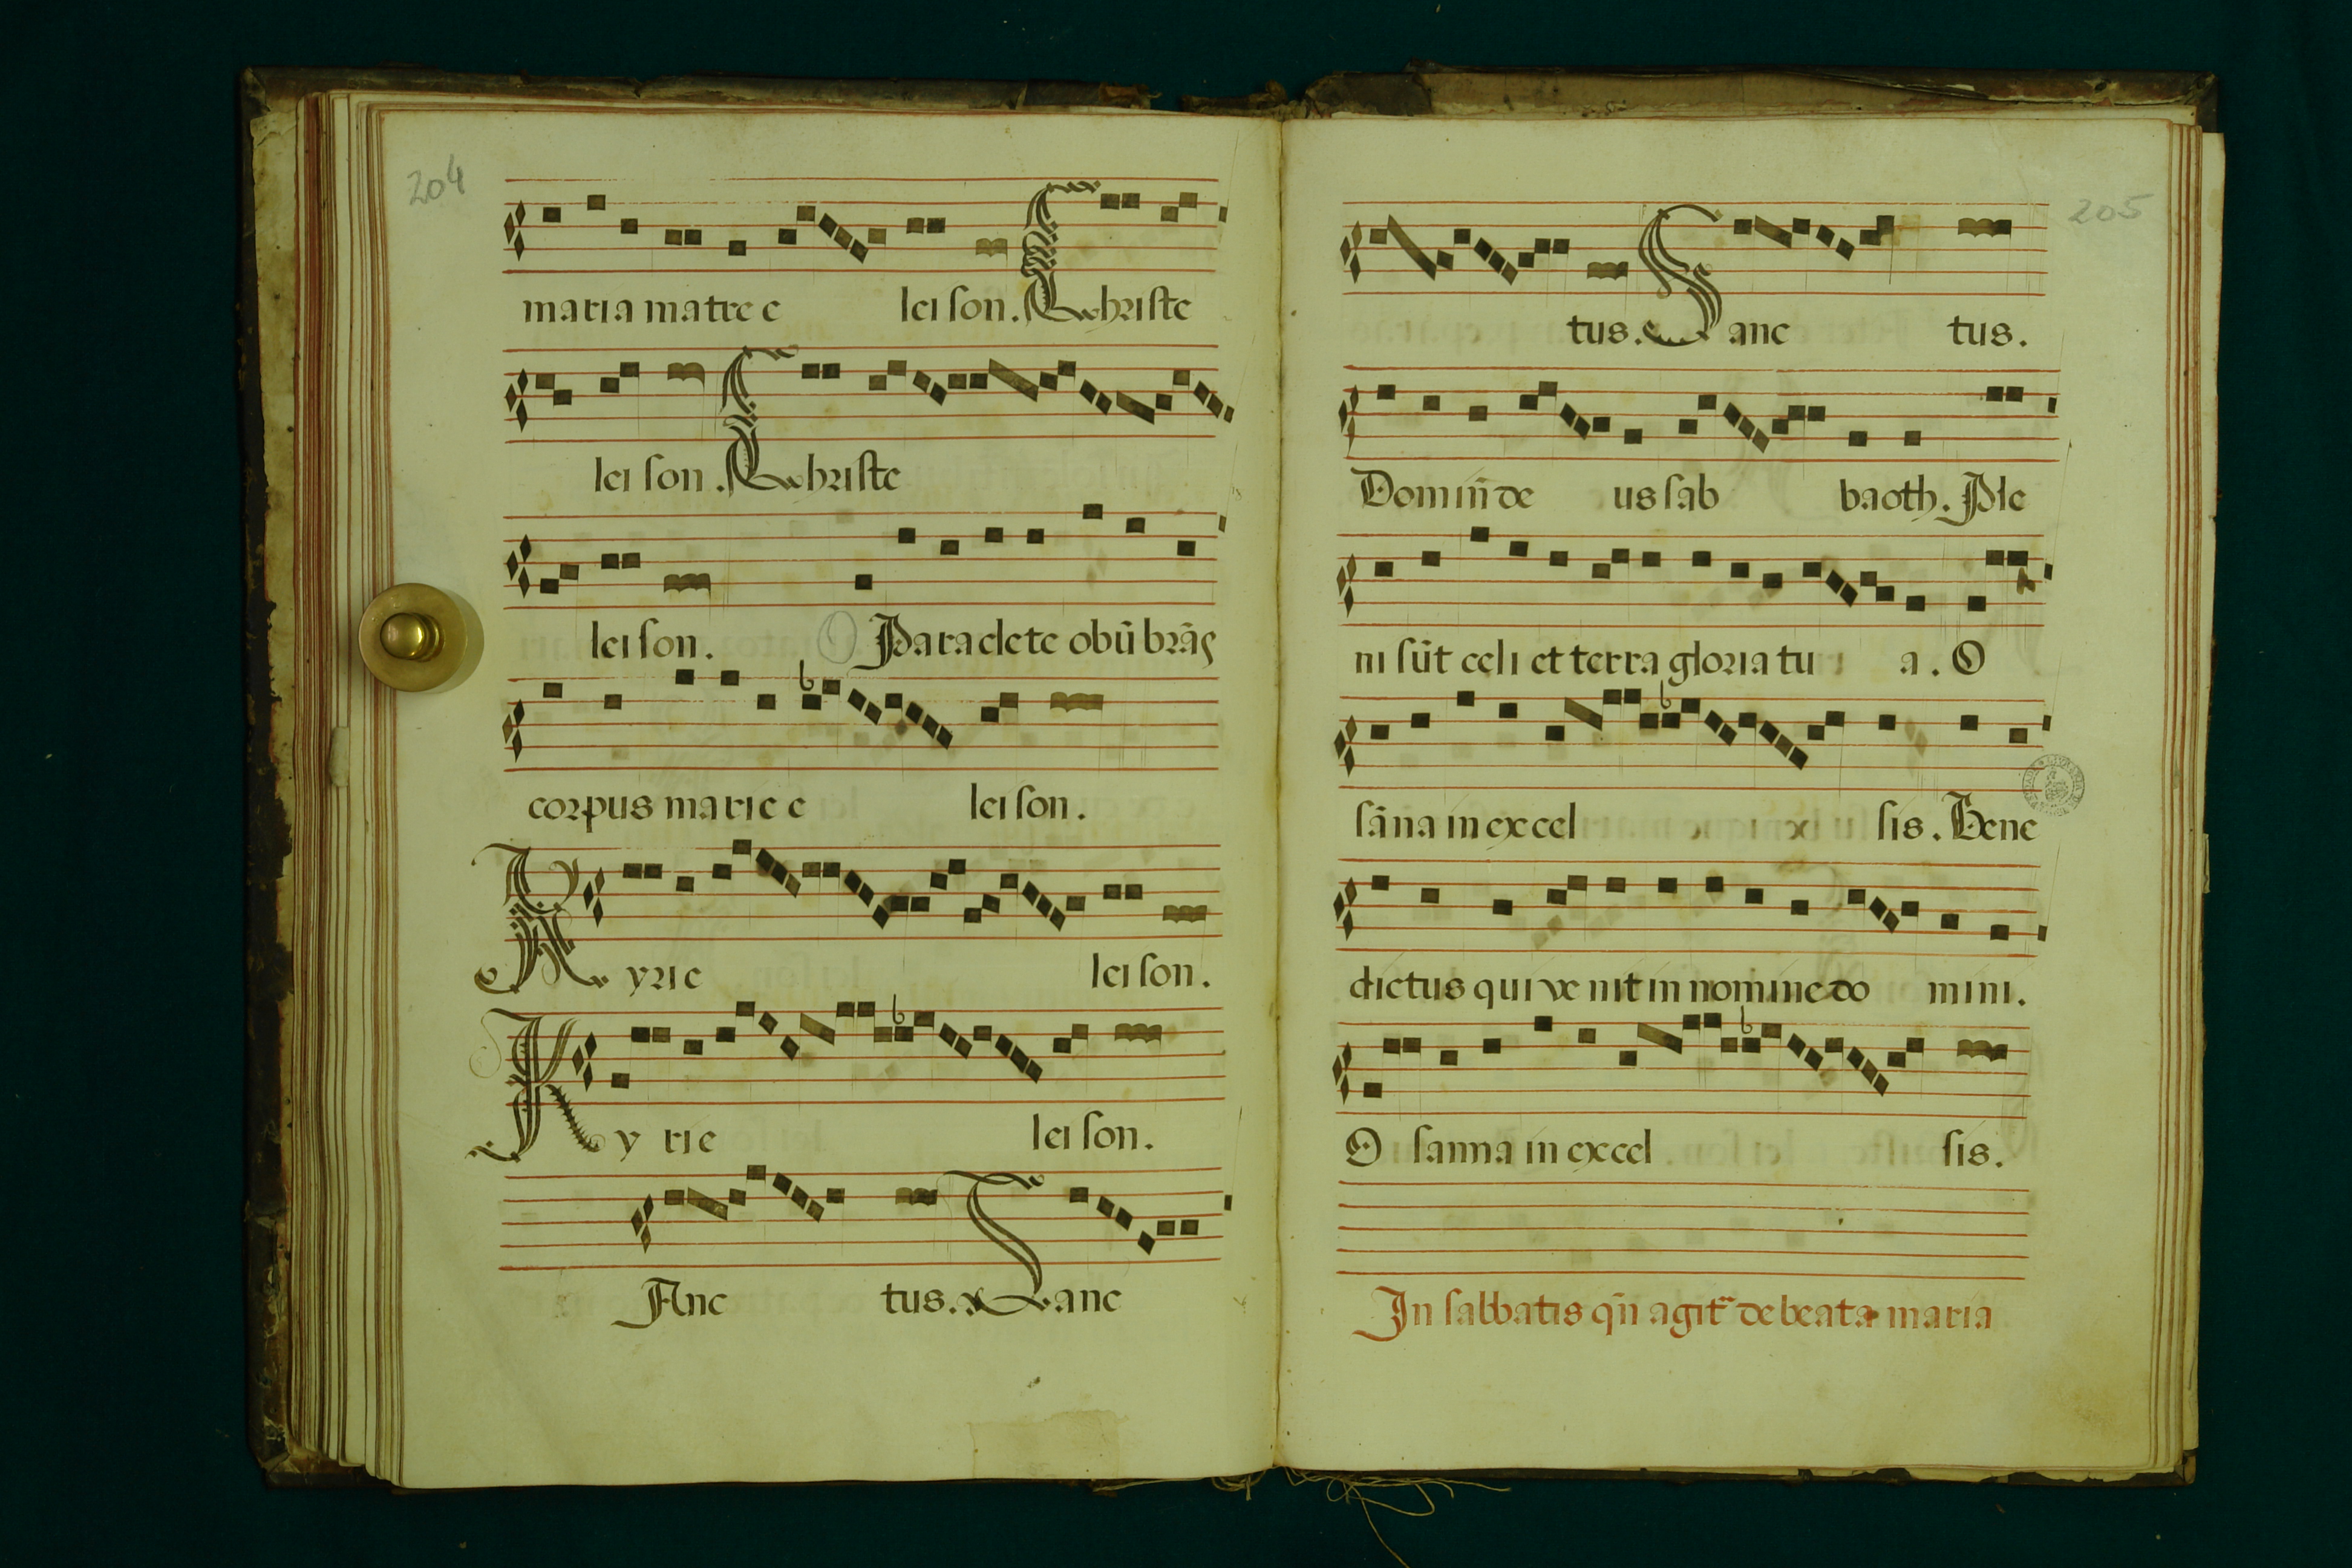 204
maria matre e lei son. Christe
lei son. Christe
lei son. O Paraclete obũ brãs
corpus marie e lei son.
Kyrie lei son.
Ky rie lei son.
Anc tus. Sanc
205
tus. Sanc tus.
Domiñ de us sab baoth. Ple
ni sũt celi et terra gloria tu a. O
sãna in excel sis. Bene
dictus qui ve nit in nomine do mini.
O sanna in excel sis.
In sabbatis qñ agit̃ de beata maria